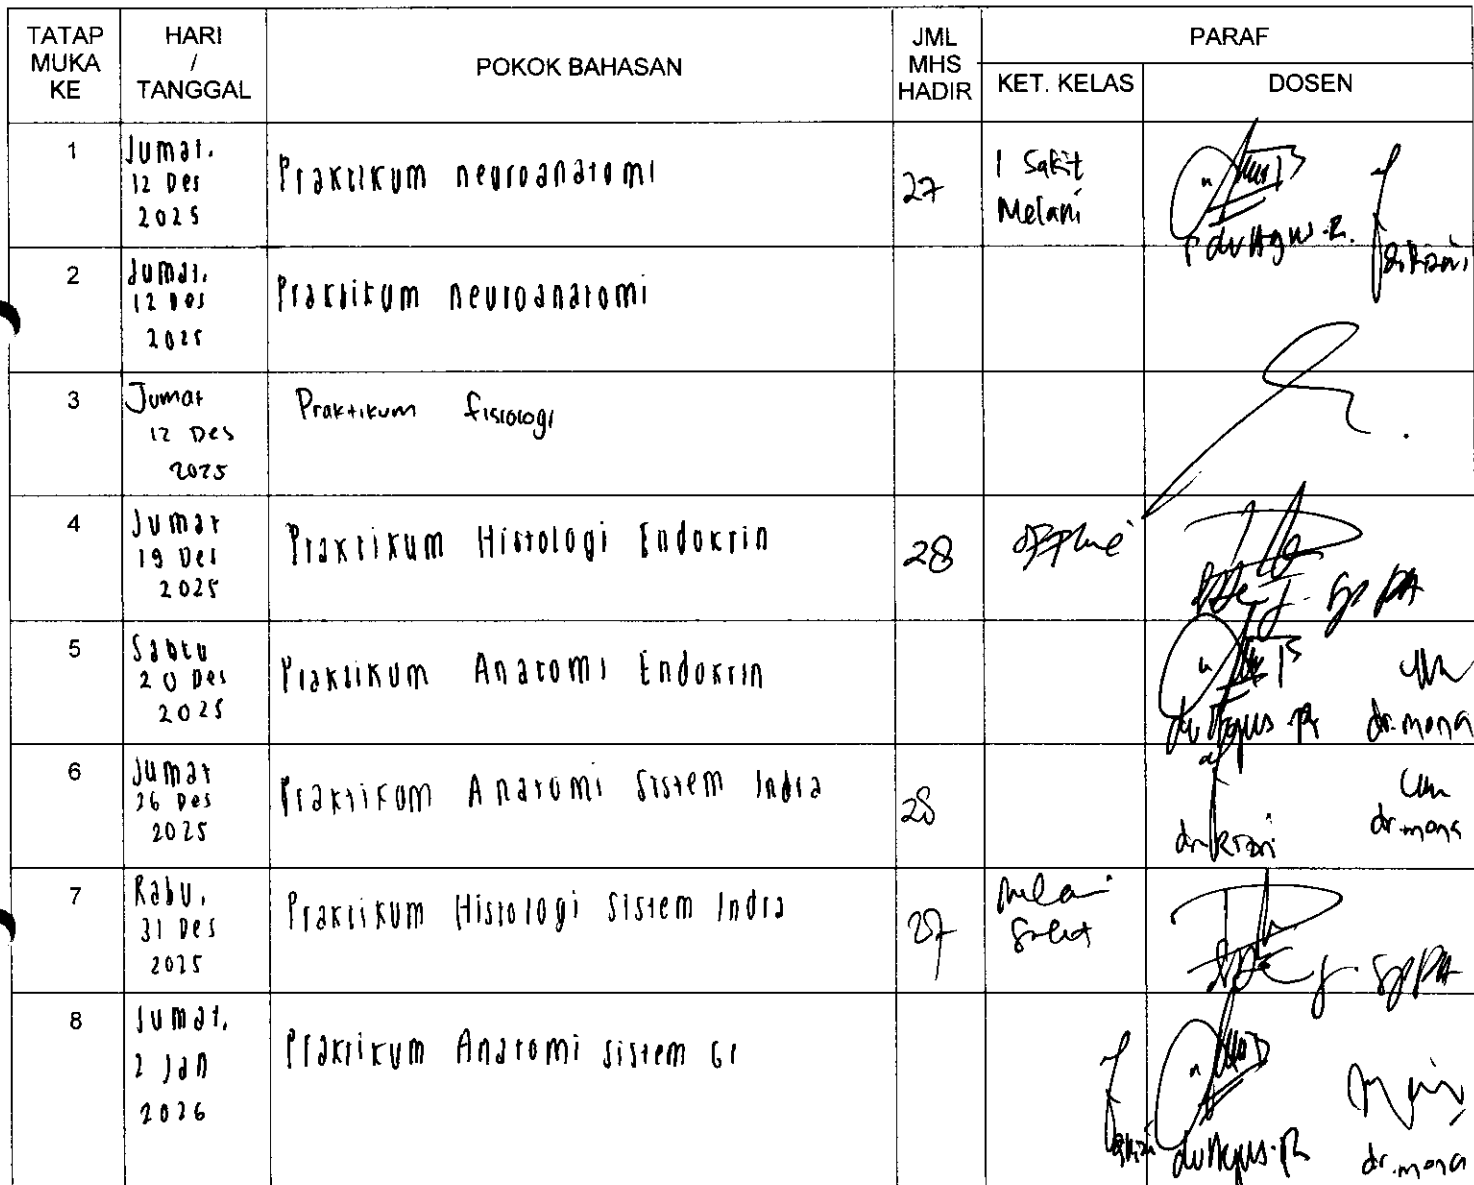 TATAP MUKA KE
HARI / TANGGAL
POKOK BAHASAN
JML MHS HADIR
PARAF
KET. KELAS
DOSEN
1
Jumat, 12 Des 2025
Praktikum neuroanatomi
27
1 Sakit Melani
dr Agus . R.
dr. Rizni
2
Jumat, 12 Des 2025
Praktikum neuroanatomi
3
Jumat 12 Des 2025
Praktikum fisiologi
4
Jumat 19 Des 2025
Praktikum Histologi Endokrin
28
offline
Sp PA
5
Sabtu 20 Des 2025
Praktikum Anatomi Endokrin
dr Agus . R
dr. mona
6
Jumat 26 Des 2025
Praktikum Anatomi Sistem Indra
28
dr. mona
7
Rabu, 31 Des 2025
Praktikum Histologi Sistem Indra
27
Melani Sakit
Sp PA
8
Jumat, 2 Jan 2026
Praktikum Anatomi Sistem GI
dr Agus . R
dr. mona